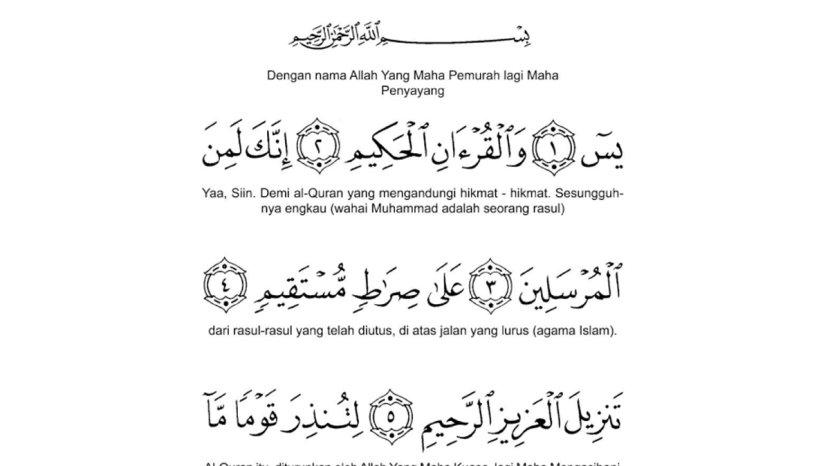 بِسْمِ اللَّهِ الرَّحْمَٰنِ الرَّحِيمِ
Dengan nama Allah Yang Maha Pemurah lagi Maha
Penyayang
يسٓ ١ وَالْقُرْءَانِ الْحَكِيمِ ٢ إِنَّكَ لَمِنَ
Yaa, Siin. Demi al-Quran yang mengandungi hikmat - hikmat. Sesungguh-
nya engkau (wahai Muhammad adalah seorang rasul)
الْمُرْسَلِينَ ٣ عَلَىٰ صِرَاطٍ مُّسْتَقِيمٍ ٤
dari rasul-rasul yang telah diutus, di atas jalan yang lurus (agama Islam).
تَنزِيلَ الْعَزِيزِ الرَّحِيمِ ٥ لِتُنذِرَ قَوْمًا مَّآ
Al-Quran itu, diturunkan oleh Allah Yang Maha Kuasa, lagi Maha Mengasihani